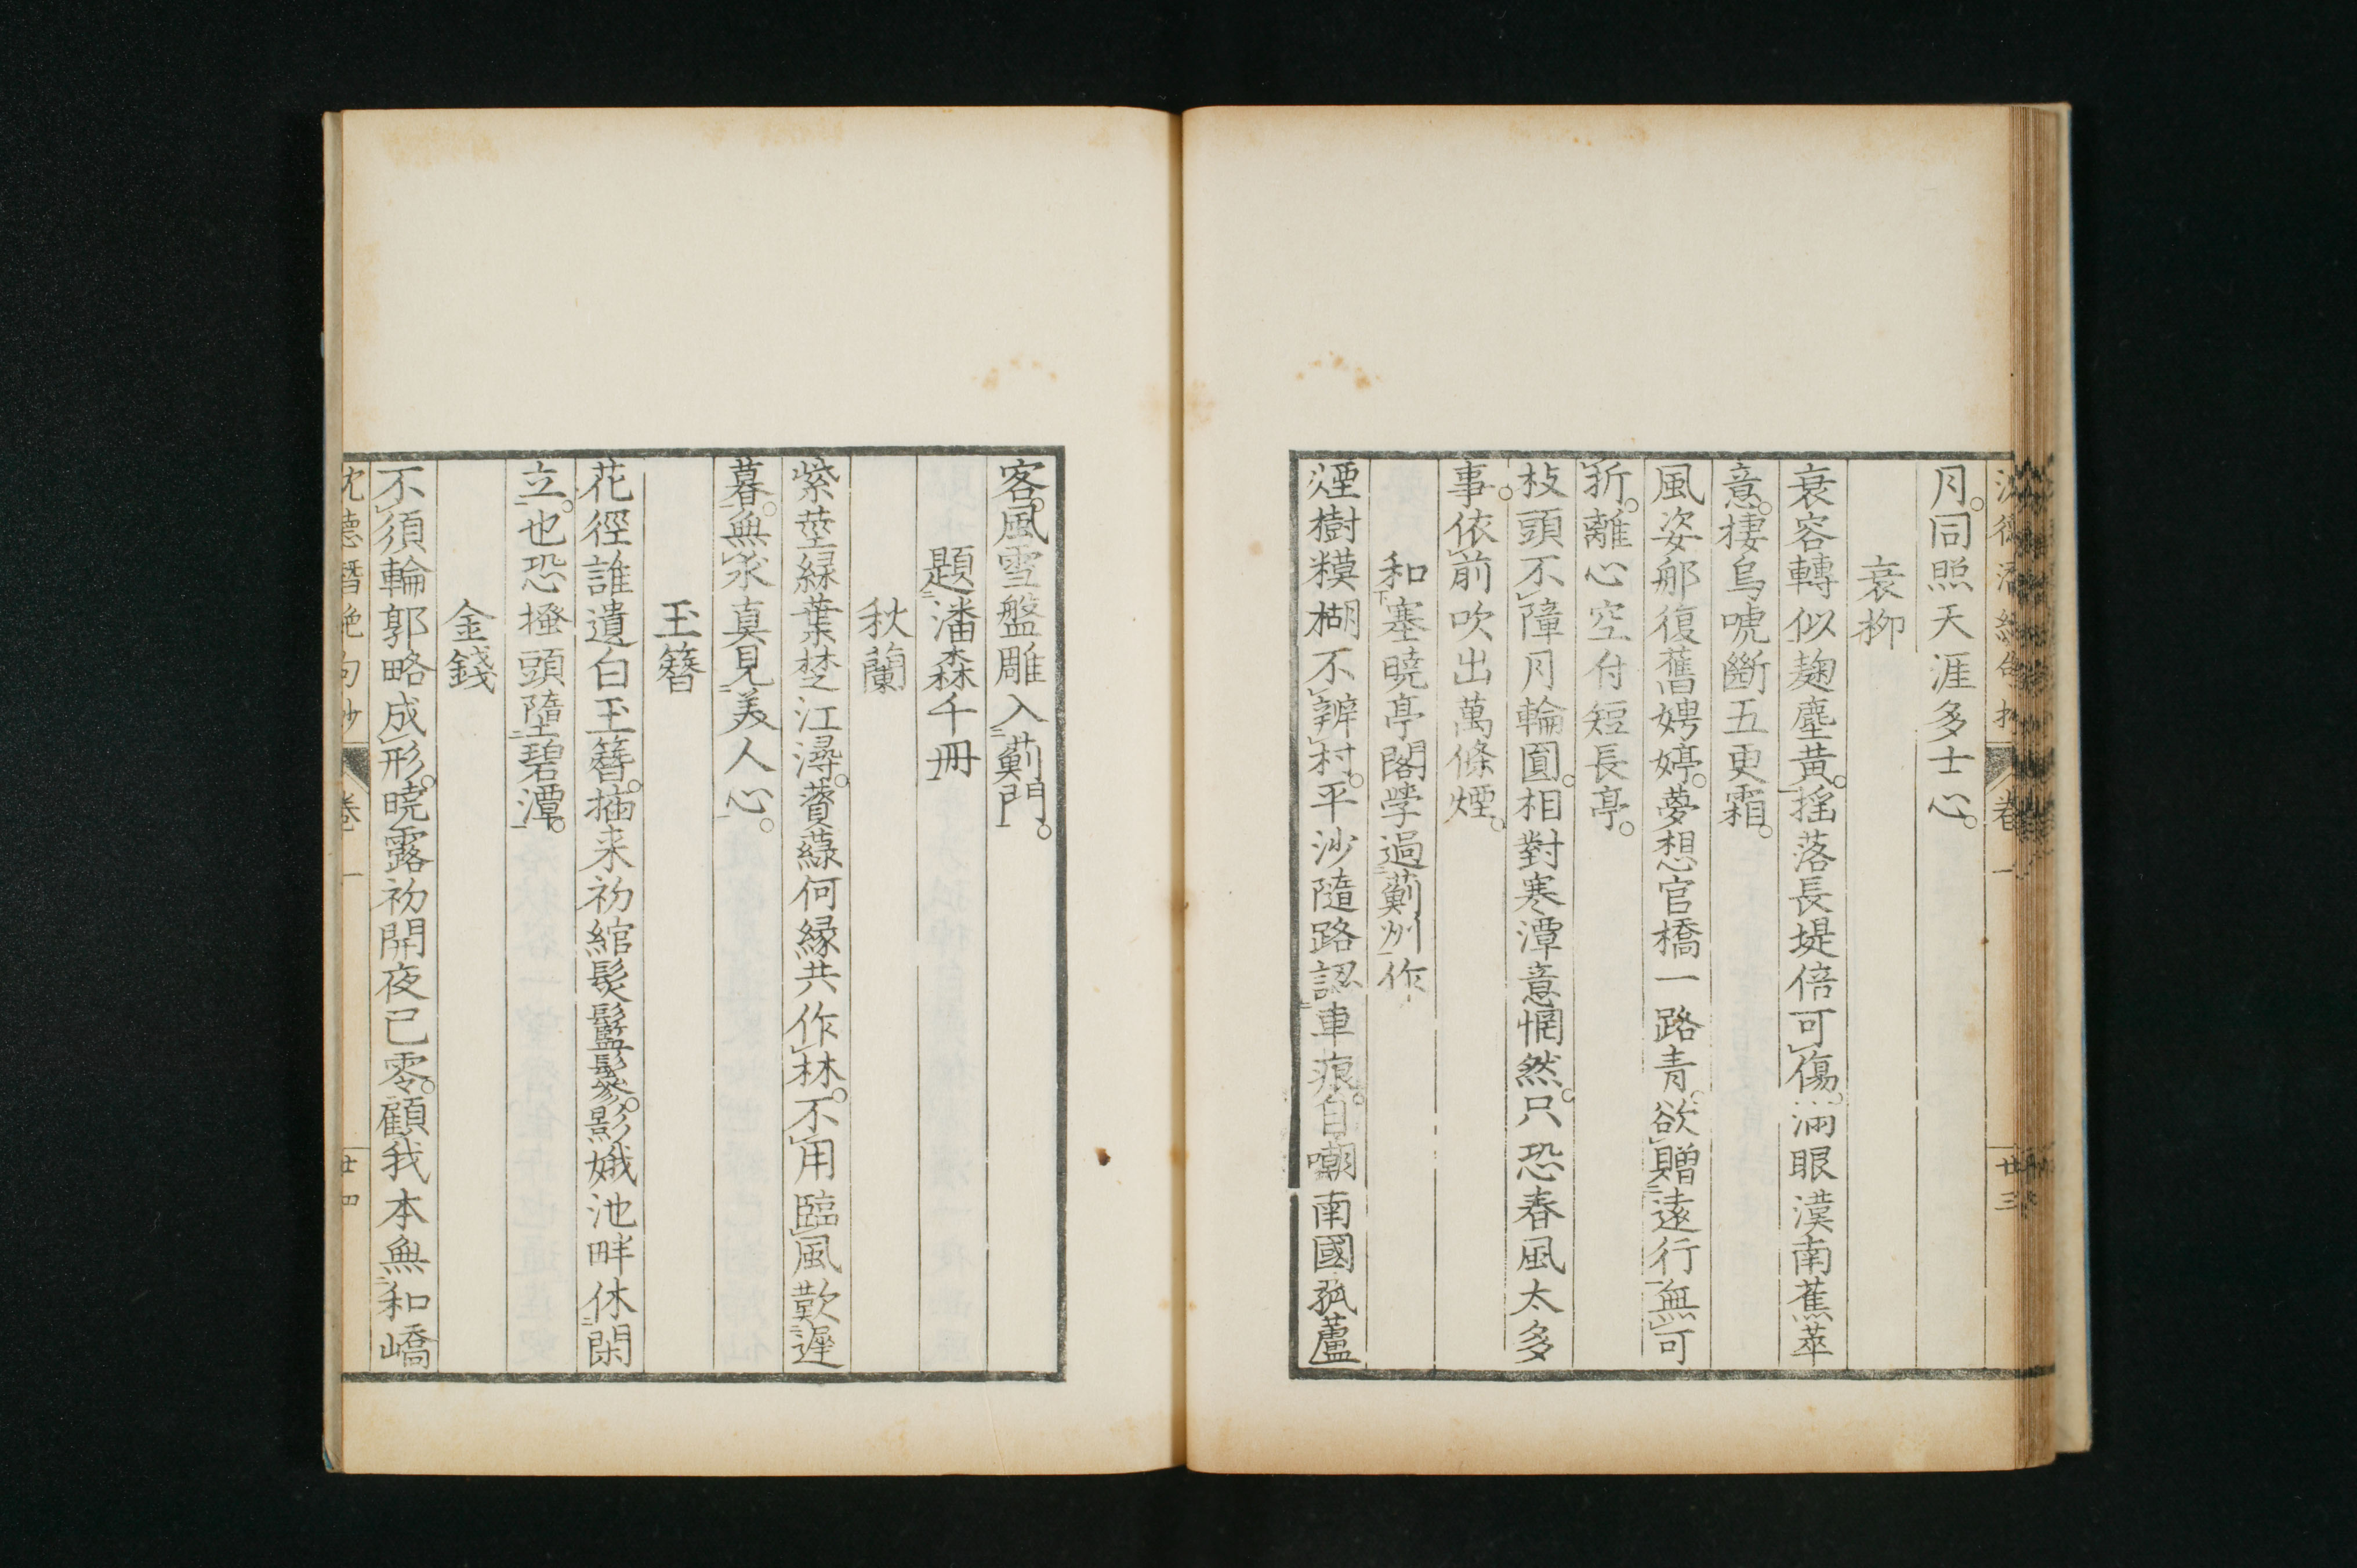 月。同照天涯多士心。
衰柳
衰容轉似麹塵黄。揺落長堤倍可傷。滿眼漢南蕉萃
意。棲烏啼斷五更霜。
風姿那復舊娉婷。夢想官橋一路青。欲贈遠行無可
折。離心空付短長亭。
枝頭不障月輪圓。相對寒潭意惘然。只恐春風太多
事。依前吹出萬條煙。
和塞曉亭閣學過薊州作
煙樹糢糊不辨村。平沙隨路認車痕。自嘲南國孤蘆
客。風雪盤雕入薊門。
題潘森千冊
秋蘭
紫莖緑葉楚江潯。薋菉何縁共作林。不用臨風歎遲
暮。無求真見美人心。
玉簪
花徑誰遺白玉簪。插来初綰髮鬖。影娥池畔休閑
立。也恐搔頭墮碧潭。
金錢
不須輪郭略成形。曉露初開夜已零。顧我本無和嶠
沈德潛絶句抄 卷一 廿四